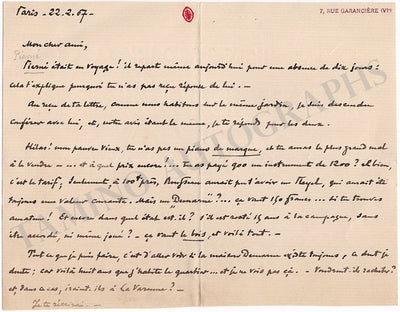 Paris - 22.2.67 -
7, RUE GARANCIÈRE (VIe)
Mon cher ami,
Pierné
Pierné était en voyage ! il repart même aujourd'hui pour une absence de dix jours :
cela t'explique pourquoi tu n'as pas reçu réponse de lui . -
Au reçu de ta lettre, comme nous habitons sur le même jardin, je suis descendu
conférer avec lui, et, notre avis étant le même, je te réponds pour les deux .
Hélas ! mon pauvre vieux, tu n'as pas un piano de marque, et tu auras le plus grand mal
à le vendre - ... et à quel prix encore ! - tu as payé 900 un instrument de 1200 ? eh bien,
c'est le tarif ; Seulement, à ce prix, aurait pu t'avoir un Pleyel, qui aurait été
toujours une vente. Mais un "Dumarne" ?... ça vaut 150 francs... si tu trouves
amateur ! Et encore dans quel état est-il ? s'il est resté 15 ans à la campagne, sans
être accordé, ni même joué ? - ça vaut le bois, et voilà tout . -
Tout ce que je puis faire, c'est d'aller voir si la maison Dumarne existe toujours, ce dont je
doute ; car voilà huit ans que j'habite le quartier... et je ne vois pas ça . - Voudront-ils racheter ?
et, dans ce cas, iraient-ils à La Varenne ? -
Je te récrirai . -
TAMINO AUTOGRAPHS